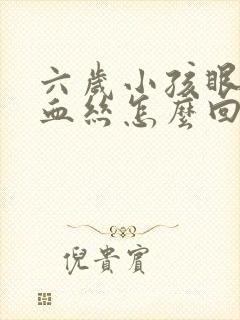 六歲小孩眼
血絲怎麼回
倪貴賓